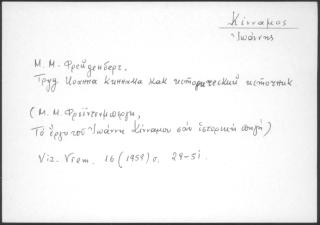 Κίνναμος
Ἰωάννης
М. М. Фрейденберг.
Труд Иоанна Киннама как исторический источник
(Μ. Μ. Φρέϊντενμπεργκ,
Τὸ ἔργο τοῦ Ἰωάννη Κίνναμου σὰν ἱστορικὴ πηγή)
Viz. Vrem. 16 (1959) σ. 29-51.